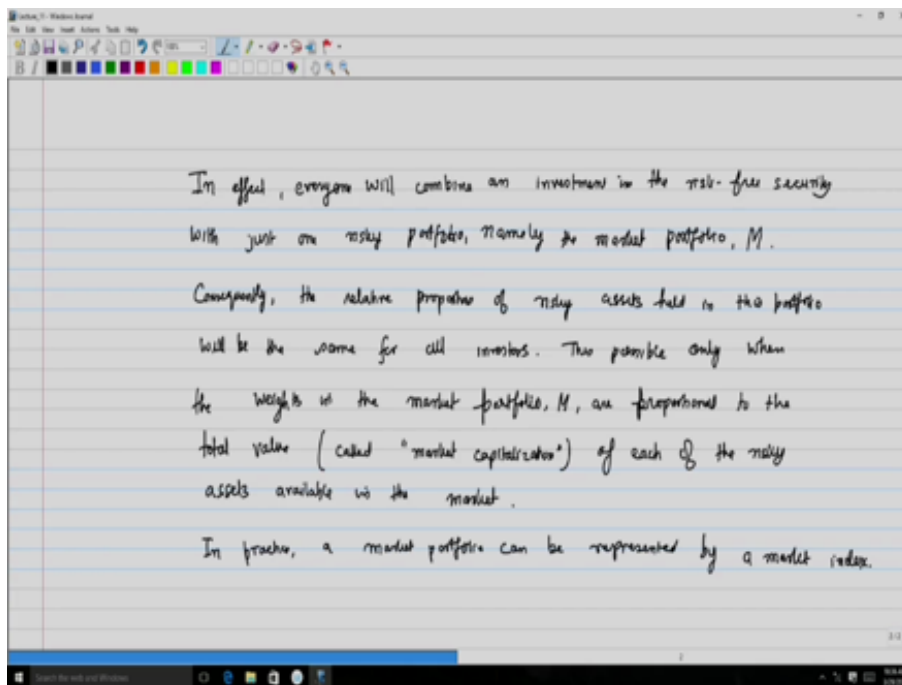 Lecture_11 - Windows Journal
File Edit View Insert Actions Tools Help
In effect, everyone will combine an investment in the risk-free security
with just one risky portfolio, namely the market portfolio, M.
Consequently, the relative proportion of risky assets held in the portfolio
will be the same for all investors. This possible only when
the weights in the market portfolio, M, are proportional to the
total value (called "market capitalization") of each of the risky
assets available in the market.
In practice, a market portfolio can be represented by a market index.
2
Search the web and Windows